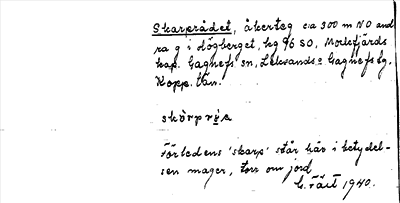 Skarprådet, åkerteg ca 300 m NO and
ra g i Högberget, kg 96 SO, Morlefjärds
kap. Gagnefs sn, Leksands o Gagnefs tg,
Kopp. län.
skårpry̱a
Förledens 'skarp' står här i betydel-
sen mager, torr om jord
1940.